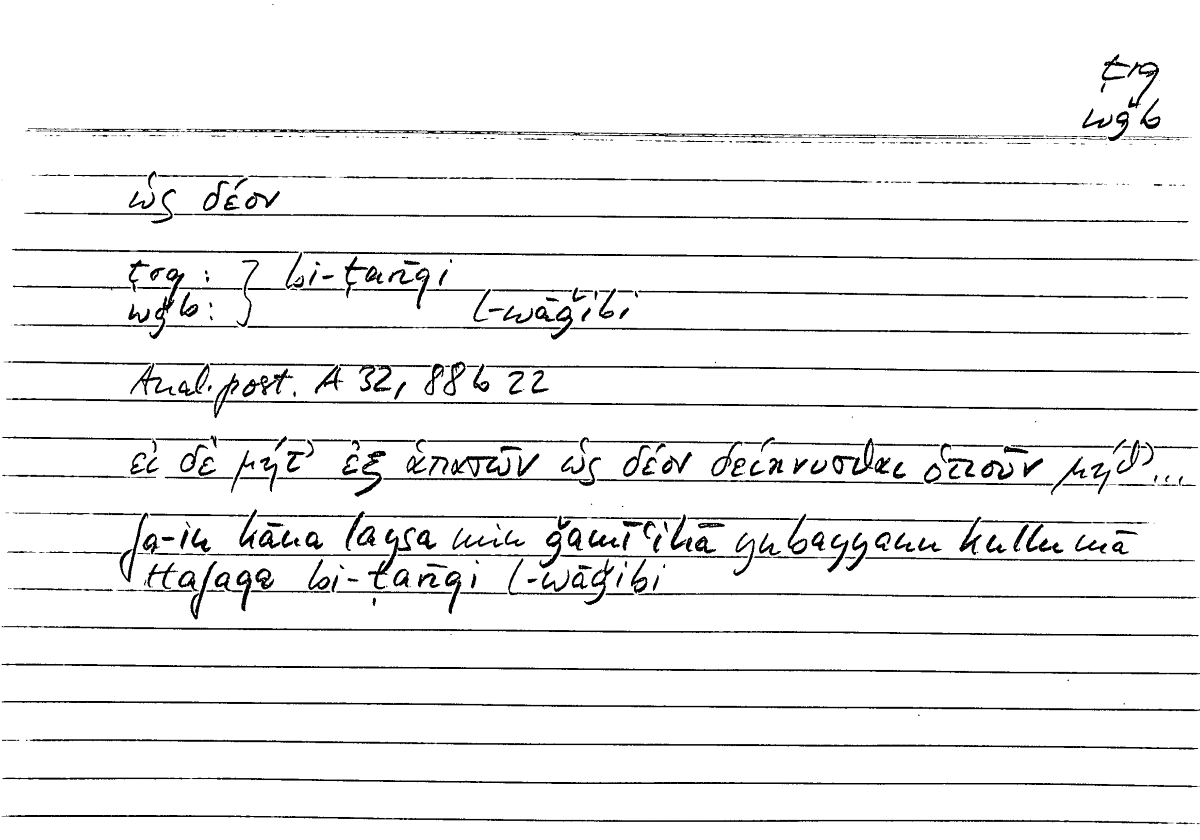 ṭrq
wǧb
ὡς δέον
ṭrq : } bi-ṭarīqi
wǧb : } l-wāǧibi
Anal. post. A 32, 88 b 22
εἰ δὲ μήτ' ἐξ ἁπασῶν ὡς δέον δείκνυσθαι ὁτιοῦν μήθ' ...
fa-in kāna laysa min ǧamīʿihā yubayyanu kullu mā
ttafaqa bi-ṭarīqi l-wāǧibi